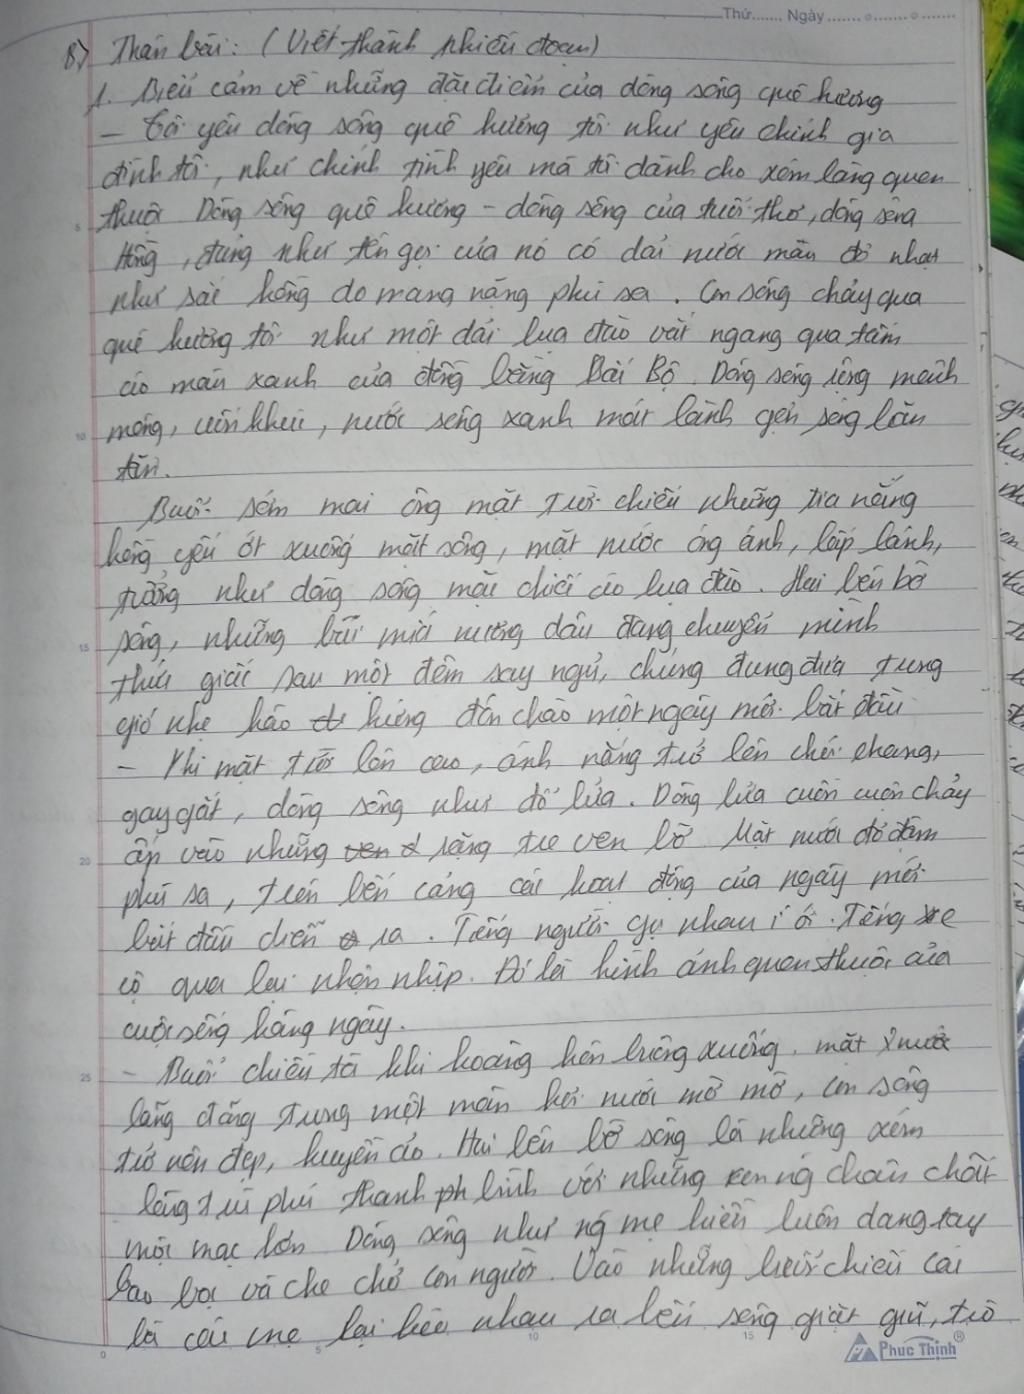 Thứ....... Ngày ....... ....... .......
B) Thân bài: (Viết thành nhiều đoạn)
1. Biểu cảm về những đặc điểm của dòng sông quê hương
– Tôi yêu dòng sông quê hương tôi như yêu chính gia
đình tôi, như chính tình yêu mà tôi dành cho xóm làng quen
thuộc Dòng sông quê hương – dòng sông của tuổi thơ, dòng sông
Hồng, đúng như tên gọi của nó có dải nước màu đỏ nhạt
như sắc hồng do mang nặng phù sa. Con sông chảy qua
quê hương tôi như một dải lụa đào vắt ngang qua tấm
áo màu xanh của đồng bằng Bắc Bộ. Dòng sông rộng mênh
mông, uốn khúc, nước sông xanh mát lành gợn sóng lăn
tăn.
Buổi sớm mai ông mặt trời chiếu những tia nắng
hồng yếu ớt xuống mặt sông, mặt nước óng ánh, lấp lánh,
tưởng như dòng sông mặc chiếc áo lụa đào. Hai bên bờ
sông, những bãi mía nương dâu đang chuyển mình
thức giấc sau một đêm say ngủ, chúng đung đưa trong
gió nhẹ háo hứng đón chào một ngày mới bắt đầu
– Khi mặt trời lên cao, ánh nắng trở lên chói chang,
gay gắt, dòng sông như đổ lửa. Dòng lửa cuồn cuộn chảy
ấp vào những rặng tre ven bờ. Mặt nước đỏ đậm
phù sa, trên bến cảng các hoạt động của ngày mới
bắt đầu diễn ra. Tiếng người gọi nhau í ới. Tiếng xe
cộ qua lại nhộn nhịp. Đó là hình ảnh quen thuộc của
cuộc sống hàng ngày.
– Buổi chiều tà khi hoàng hôn buông xuống, mặt nước
lãng đãng trong một màn hơi nước mờ mờ, con sông
trở nên đẹp, huyền ảo. Hai bên bờ sông là những xóm
làng trù phú thanh bình với những con ng chân chất
mộc mạc lớn Dòng sông như ng mẹ hiền luôn dang tay
bao bọc và che chở con người. Vào những buổi chiều các
là các mẹ lại kéo nhau ra bến sông giặt giũ, trò
Phuc Thinh®